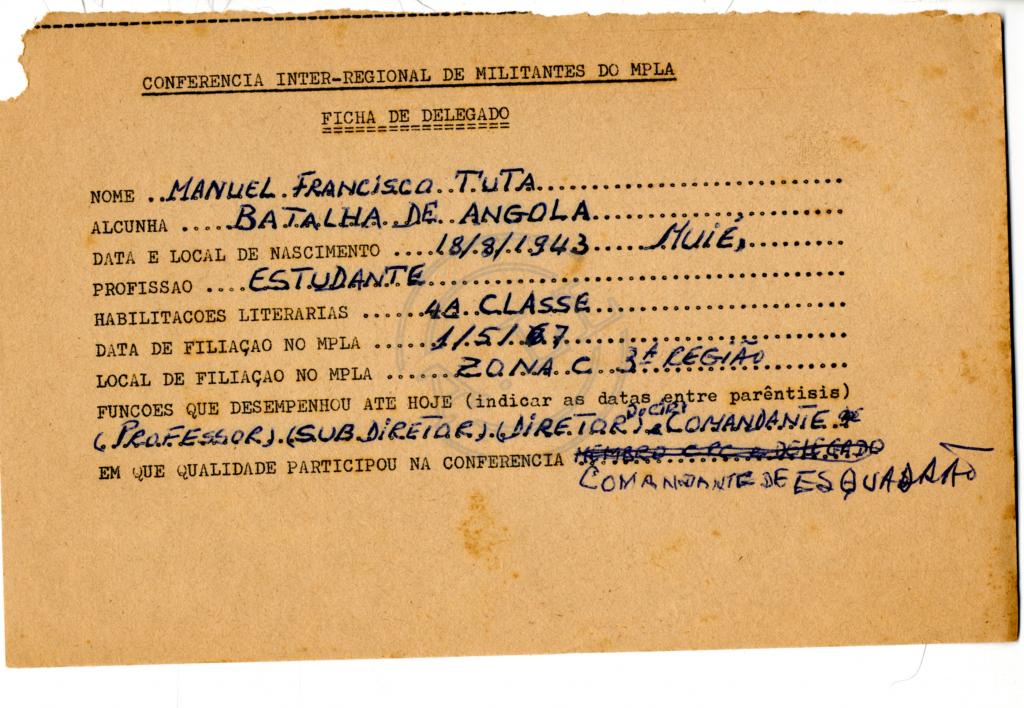 CONFERENCIA INTER-REGIONAL DE MILITANTES DO MPLA
FICHA DE DELEGADO
NOME ..MANUEL FRANCISCO TUTA
ALCUNHA .....BATALHA DE ANGOLA
DATA E LOCAL DE NASCIMENTO ....18/8/1943.....MUIÉ,
PROFISSAO ....ESTUDANTE
HABILITACOES LITERARIAS ......4A CLASSE
DATA DE FILIAÇAO NO MPLA ......1/5/67
LOCAL DE FILIAÇAO NO MPLA ......ZONA C 3ª REGIÃO
FUNCOES QUE DESEMPENHOU ATÉ HOJE (indicar as datas entre parêntisis)
(PROFESSOR).(SUB.DIRETOR).(DIRETOR) COMANDANTE
EM QUE QUALIDADE PARTICIPOU NA CONFERENCIA MEMBRO C.P.C. DELEGADO
COMANDANTE DE ESQUADRÃO